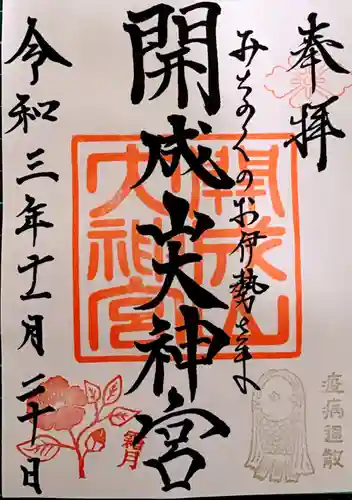 奉拝
みちのくのお伊勢さま
開成山大神宮
令和三年十一月二十日
開成山
大神宮
霜月
疫病退散